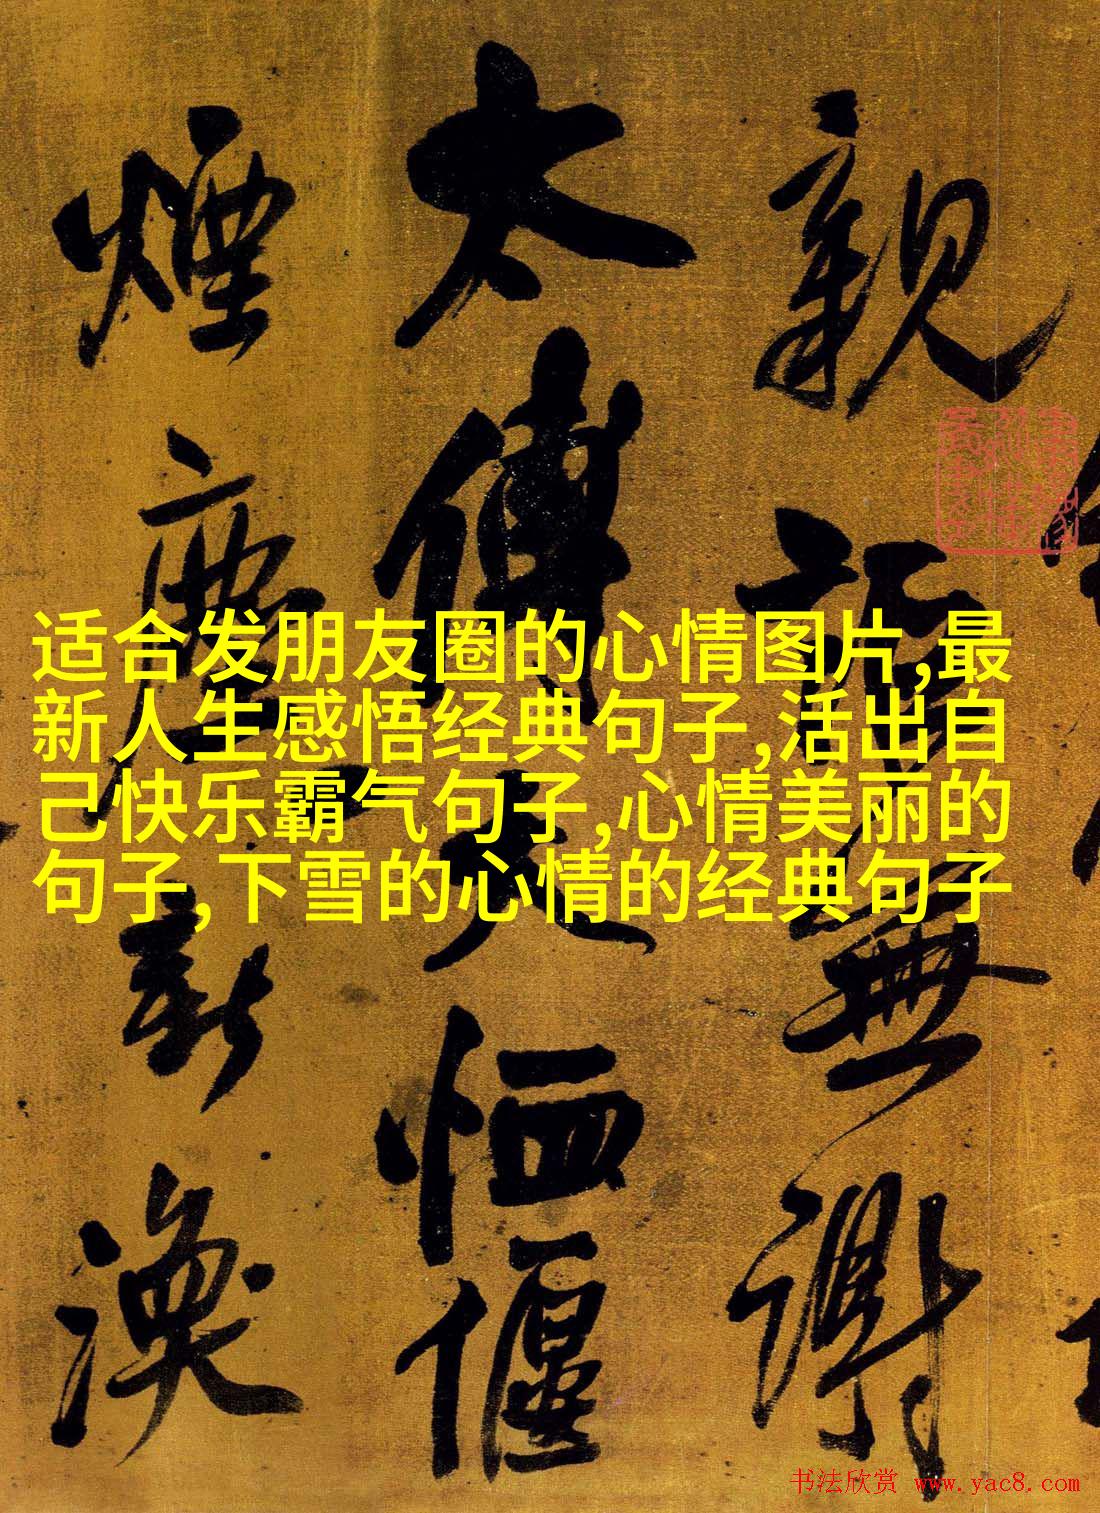 親禮無謝
太傅夫恤偃
煙塵新渙
适合发朋友圈的心情图片,最
新人生感悟经典句子,活出自
己快乐霸气句子,心情美丽的
句子,下雪的心情的经典句子
书法欣赏 www.yac8.com